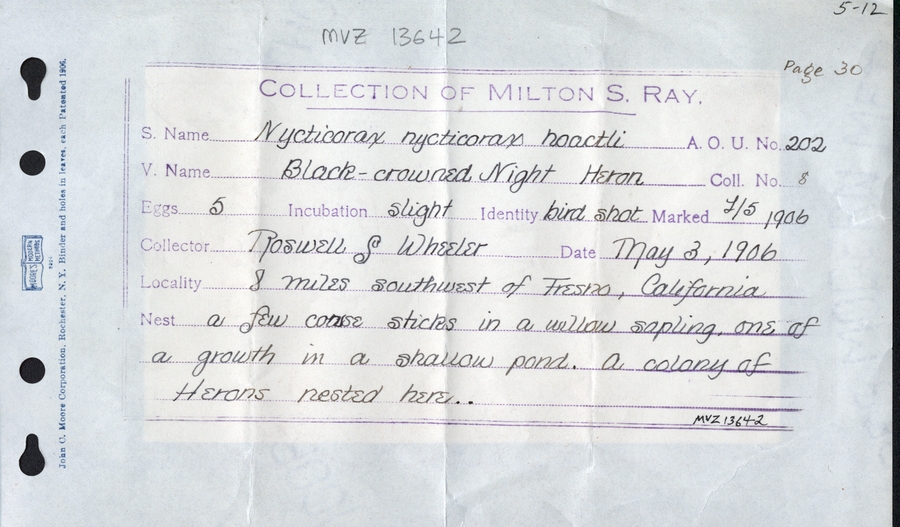 5-12
MVZ 13642
Page 30
COLLECTION OF MILTON S. RAY.
S. Name Nycticorax nycticorax hoactli A. O. U. No. 202
V. Name Black-crowned Night Heron Coll. No. 8
Eggs 5 Incubation slight Identity bird shot Marked 7/5 1906
Collector Roswell S Wheeler Date May 3, 1906
Locality 8 miles southwest of Fresno, California
Nest a few coarse sticks in a willow sapling, one of
a growth in a shallow pond. A colony of
Herons nested here..
MVZ 13642
John C. Moore Corporation, Rochester, N. Y. Binder and holes in leaves, each Patented 1906.
MOORE'S MODERN METHODS